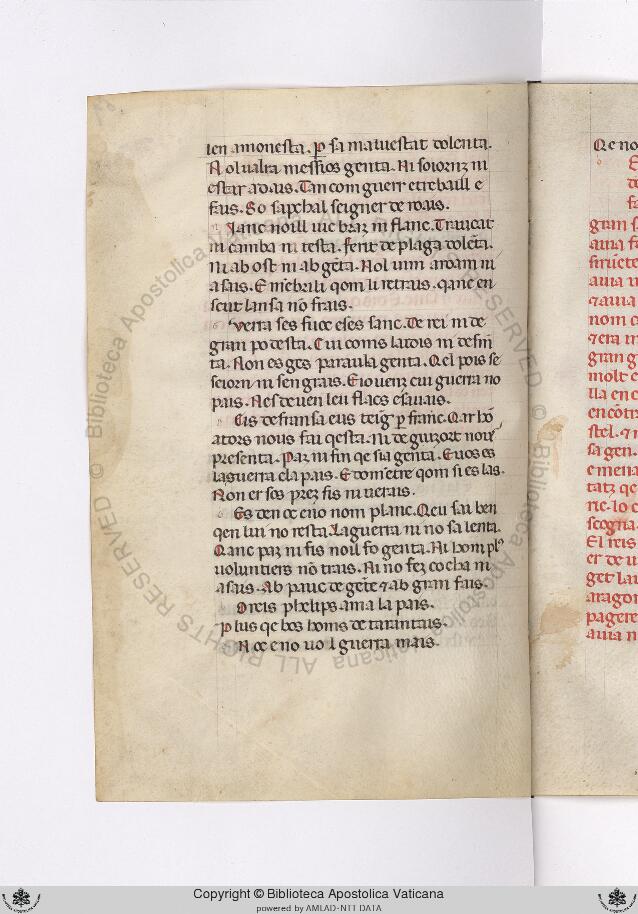 len amonesta. ꝑ sa maluestat dolenta.
Nol ualra messios genta. Ni soiornz ni
estar adaus. Tan com guerr e trebaill e
faus. So sapchal seigner de roais.
Anc noill uic braz ni flanc. Trencat
ni camba ni testa. ferit de plaga dolēta.
Ni ab ost ni ab gēta. Nol uim aroam ni
a sais. E mēbrili qom li retrais. qanc en
scut lansa nō frais.
Verra ses fuoc e ses sanc. De rei ni de
gran podesta. Cui coms laidis ni desmē
ta. Non es ges paraula genta. Qel pois se
seiorn ni sen grais. E iouenz cui guerra no
pais. Nesdeuen leu flacs e sauais.
Reis de fransa eus teing ꝑ franc. Qar bō
tors nous fai qesta. Ni de guizort nois
presenta. Paz ni fin qe sia genta. E uos es
la guerra e la pais. E domētre qom si es las.
Non er sos prez fis ni uerais.
Es den oc e no nom planc. Qeu sai ben
qen lui no resta. La guerra ni no sa lenta.
Qanc paz ni fis noil fo genta. Ni hom plꝰ
uoluntiers nō trais. Ni no fez cocha ni
asais. Ab pauc de gēte ⁊ ab gran fais.
Lo reis phelips ama la pais.
plus qe bos homs de tarantais.
N oc e no uol guerra mais.
Qe no
gran s
auia fa
auia
nom
gran g
molt e
lla en
encōtr
stel. ⁊
sa gen.
e mena
tatz qe
ric. lo
scogna
El reis
er de u
get la
aragon
pagere
auia n
Copyright © Biblioteca Apostolica Vaticana
powered by AMLAD-NTT DATA
© Biblioteca Apostolica Vaticana ALL RIGHTS RESERVED